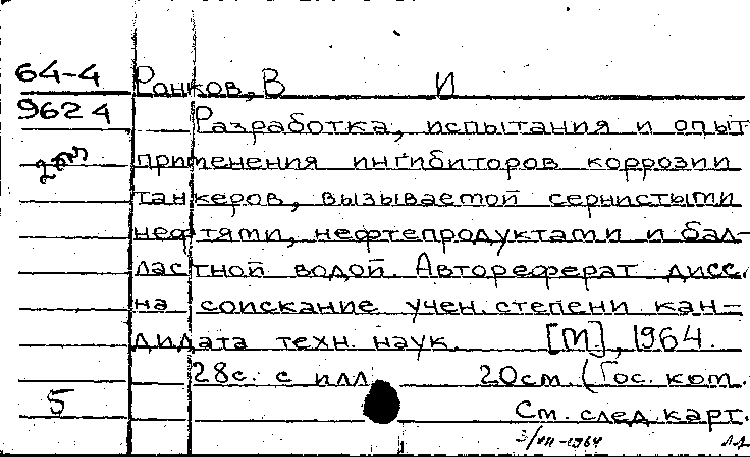 64-4
9624
Ранков, В И
Разработка, испытания и опыт
применения ингибиторов коррозии
танкеров, вызываемой сернистыми
нефтями, нефтепродуктами и бал-
ластной водой. Автореферат дисс.
на соискание учен. степени кан-
дидата техн. наук. [М.], 1964.
28с. с илл 20см. (Гос. ком.
5
См. след. карт.
3/VII-1964